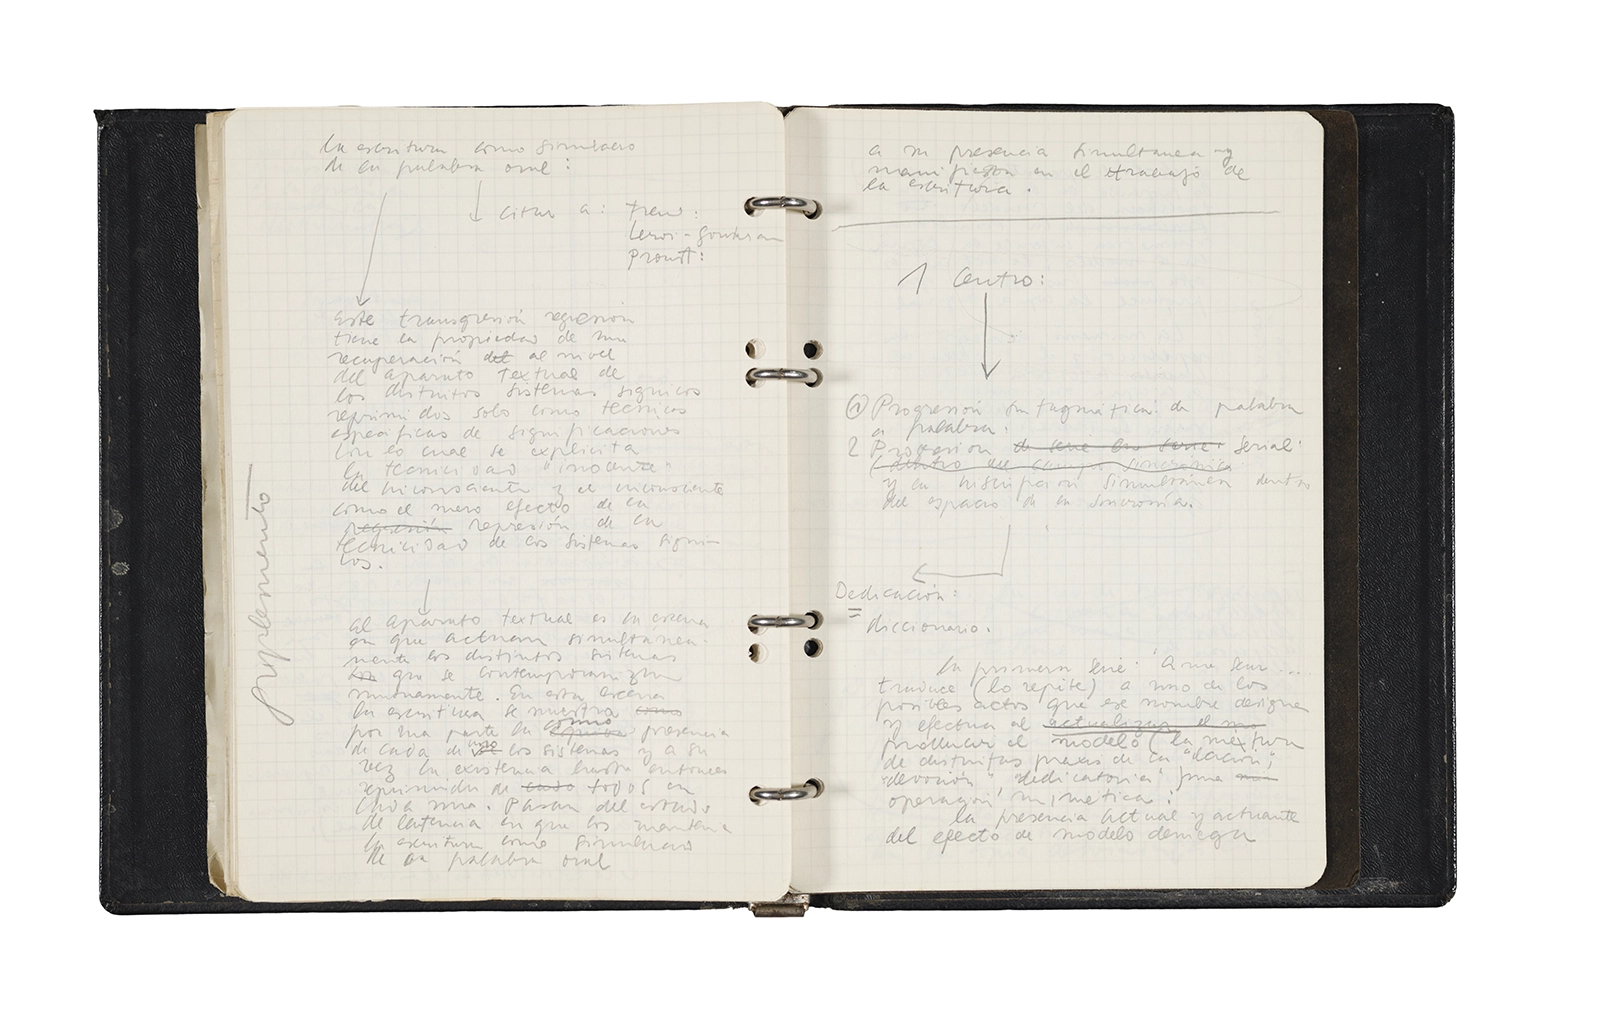 la escritura como simulacro
de la palabra oral:
citar a: Freud:
Leroi-Gourhan
Proust:
Este transgresión regresión
tiene la propiedad de una
recuperación del al nivel
del aparato textual de
los distintos sistemas sígnicos
reprimidos solo como técnicas
específicas de significaciones
con lo cual se explicita
la tecnicidad "inocente"
del inconsciente y el inconsciente
como el mero efecto de la
regresión represión de la
tecnicidad de los sistemas sígni-
cos.
suplemento
al aparato textual es la escena
en que actúan simultánea-
mente los distintos sistemas
los que se contemporanizan
mutuamente. En esta escena
la escritura se muestra como
por una parte la como presencia
de cada uno de los sistemas y a su
vez la existencia hasta entonces
reprimida de cada todos en
cada uno. Pasan del estado
de latencia en que los mantenía
la escritura como simulacro
de la palabra oral
a su presencia simultanea y
manifiesta en el trabajo de
la escritura.
1 Centro:
① Progresión sintagmática: de palabra
a palabra.
2 Progresion de serie en serie: serial:
(dentro del campo sincrónico
y la inscripción simultánea dentro
del espacio de la sincronía.
Dedicación:
=
diccionario.
la primera serie: A me seur....
traduce (lo repite) a uno de los
posibles actos que ese nombre designa
y efectua al actualizar el mo
producir el modelo (la mixtura
de distintas praxis de la "dación",
"devoción", "dedicatoria") una
operación mimética:
la presencia actual y actuante
del efecto de modelo deniega